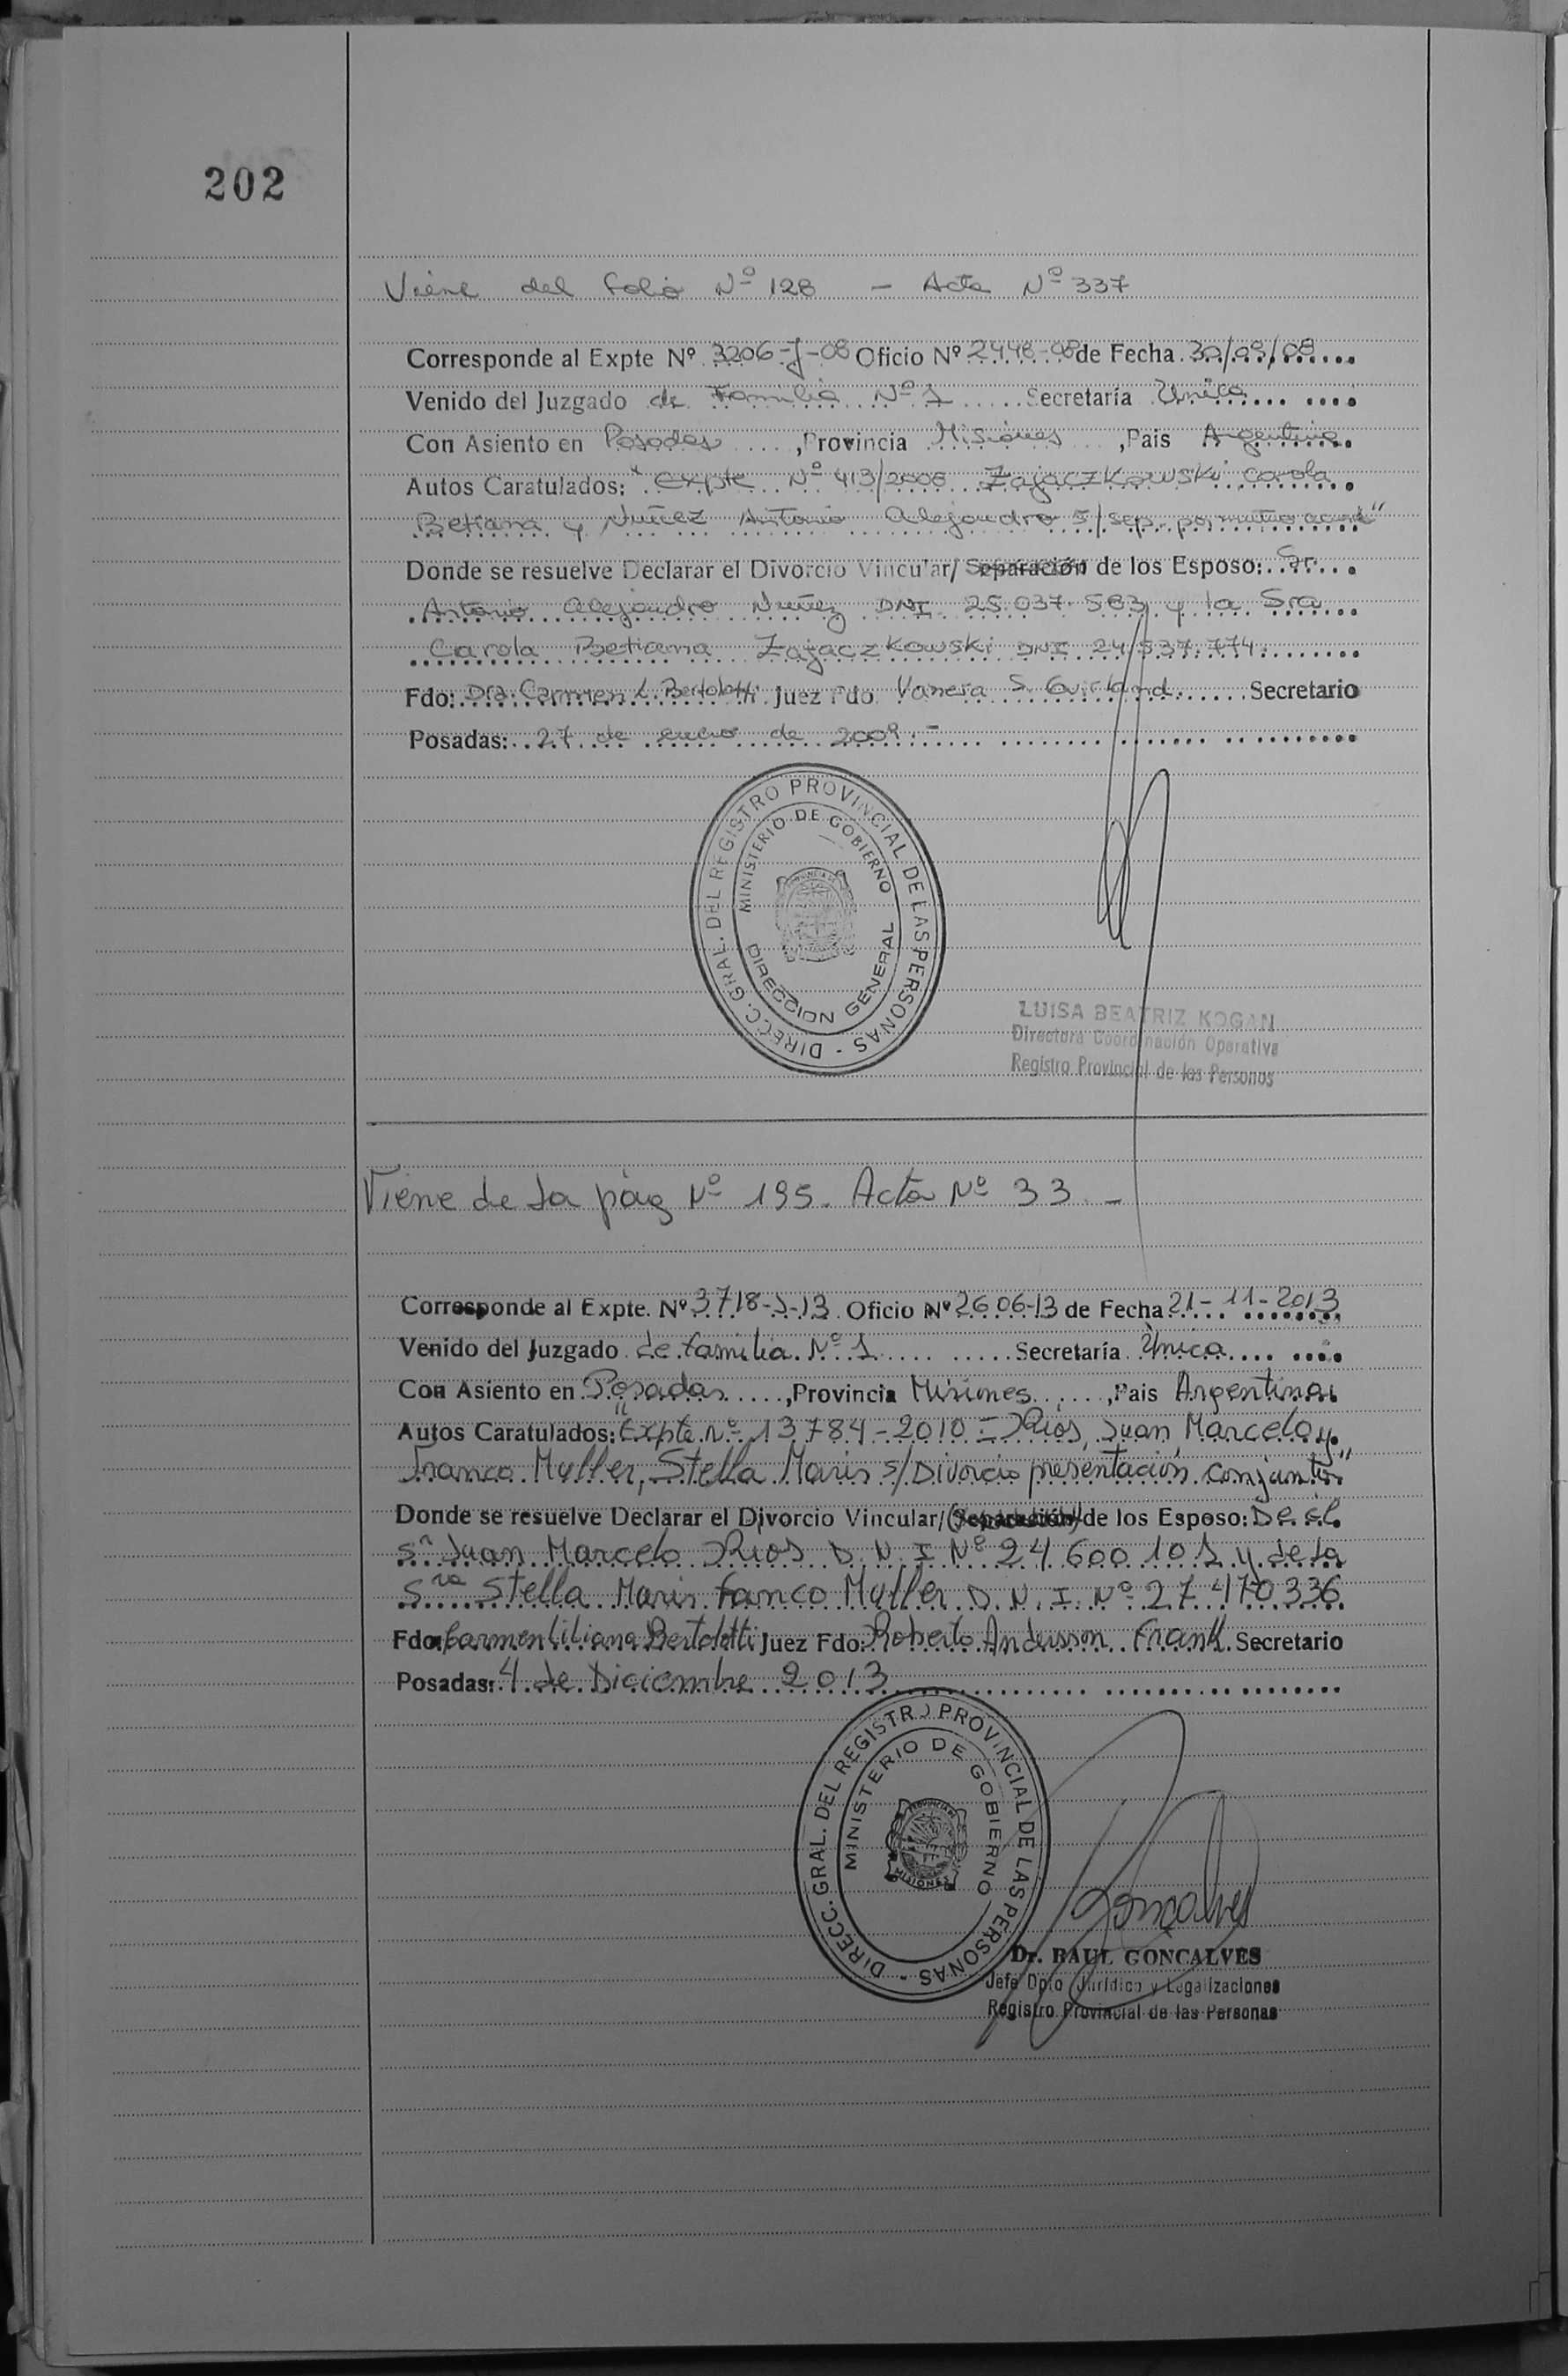 202
Viene del folio Nº 128 - Acta Nº 337
Corresponde al Expte Nº 3206-J-08 Oficio Nº 2448-08 de Fecha 30/09/08
Venido del Juzgado de Familia Nº 1 Secretaría Única
Con Asiento en Posadas, Provincia Misiones, Pais Argentina
Autos Caratulados: "Expte Nº 413/2006 Zajaczkowski Carola
Betiana y Nuñez Antonio Alejandro s/sep. por mutuo acuerdo"
Donde se resuelve Declarar el Divorcio Vincular/ Separación de los Esposo: Sr.
Antonio Alejandro Nuñez DNI 25.037.583 y la Sra
Carola Betiana Zajaczkowski DNI 24.537.774
Fdo: Dra. Carmen L. Bertolotti Juez Fdo. Vanesa S. Guirland Secretario
Posadas: 27 de enero de 2009.-
DIRECC. GRAL. DEL REGISTRO PROVINCIAL DE LAS PERSONAS -
MINISTERIO DE GOBIERNO
DIRECCION GENERAL
LUISA BEATRIZ KOGAN
Directora Coordinación Operativa
Registro Provincial de las Personas
Viene de la pág Nº 195. Acta Nº 33.-
Corresponde al Expte. Nº 3718-J-13 Oficio Nº 2606-13 de Fecha 21-11-2013
Venido del Juzgado de familia Nº 1 Secretaría Única
Con Asiento en Posadas, Provincia Misiones, Pais Argentina
Autos Caratulados: "Expte. nº 13784-2010 - Rios, Juan Marcelo y
Franco Muller, Stella Maris s/Divorcio presentación conjunta"
Donde se resuelve Declarar el Divorcio Vincular/(Separación) de los Esposo: De el
Sr Juan Marcelo Rios D.N.I Nº 24 600 101 y de la
Sra Stella Maris Franco Muller D.N.I. Nº 27 470 336
Fdo: Carmen Liliana Bertolotti Juez Fdo: Roberto Andersson Frank Secretario
Posadas: 4 de Diciembre 2013
DIRECC. GRAL. DEL REGISTRO PROVINCIAL DE LAS PERSONAS -
MINISTERIO DE GOBIERNO
PROVINCIA DE
MISIONES
Goncalves
Dr. RAUL GONCALVES
Jefe Dpto Jurídico y Legalizaciones
Registro Provincial de las Personas